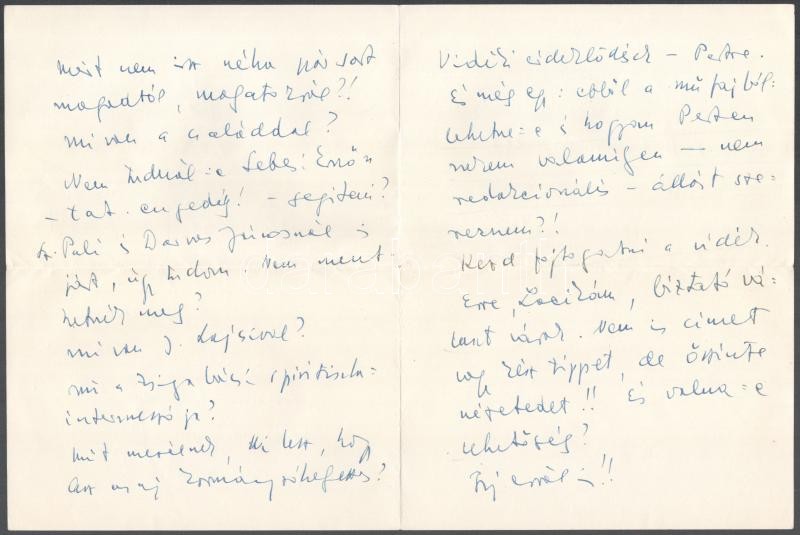 miért nem írsz néha pár sort
magadtól, magatokról?!
mi van a családdal?
Nem tudnál-e Sebesi Ernőn
– tat. engedély! – segíteni?
Sz. Pali és Darvas Jánosnál is
járt, úgy tudom. Nem ment-
hetnék meg?
mi van J. Lajcsival?
mi a Zsiga bácsi spiritiszta-
intermezzója?
Mit mesélnek, Mi lesz, hogy
lesz az új kormány
Vidéki érdeklődések – Pestre.
És még egy: ebből a műfajból:
lehetne-e és hogyan Pesten
nekem valamilyen — nem
redakcionális – állást sze-
reznem?!
Kezd fojtogatni a vidék.
Erre, Lacikám, biztató vá-
laszt várok. Nem is címet
vagy kész tippet, de őszinte
nézetedet!! És volna-e
lehetőség?
Írj erről is!!